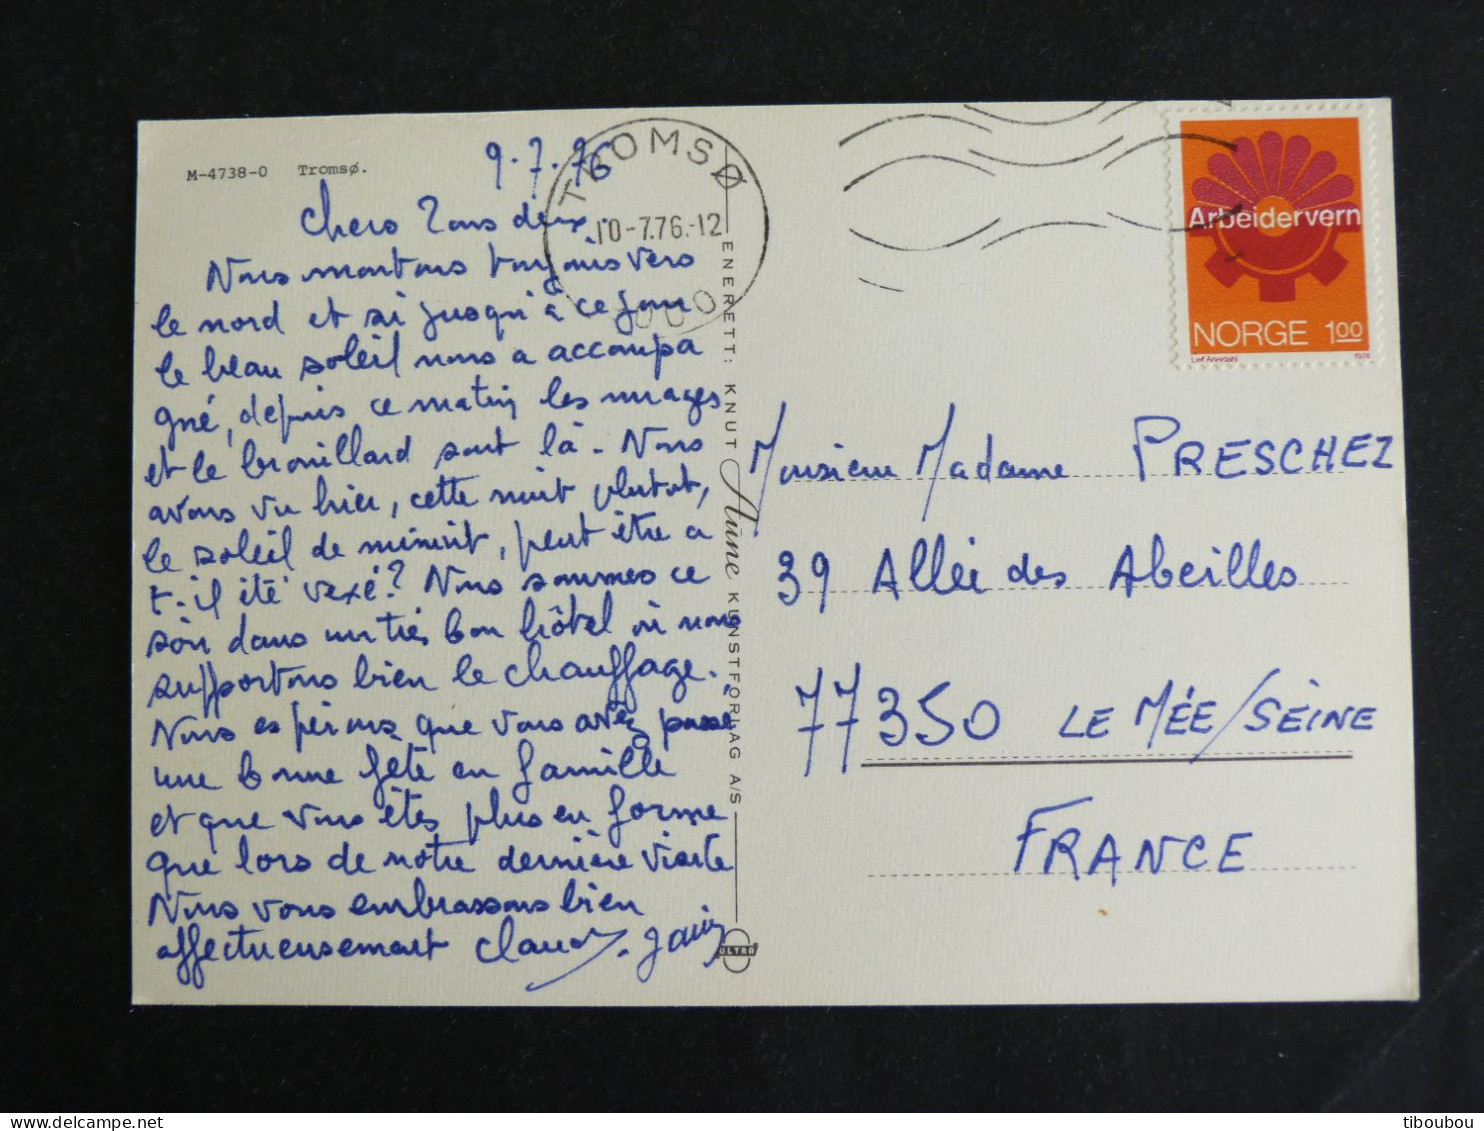 M-4738-0 Tromsø.
9.7.76
Chers Tous deux.
Nous montons toujours vers
le nord et si jusqu'à ce jour
le beau soleil nous a accompa
gné, depuis ce matin les nuages
et le brouillard sont là. Nous
avons vu hier, cette nuit plutot,
le soleil de minuit, peut être a
t-il été vexé? Nous sommes ce
soir dans un très bon hôtel où nous
supportons bien le chauffage.
Nous espérons que vous avez passé
une bonne fête en famille
et que vous êtes plus en forme
que lors de notre dernière visite
Nous vous embrassons bien
affectueusement
TROMSØ
10-7.76.-12
ENERETT: KNUT Aune KUNSTFORLAG A/S
ULTRA
Arbeidervern
NORGE 100
Leif Anisdahl 1974
Monsieur Madame PRESCHEZ
39 Allée des Abeilles
77350 LE MÉE/SEINE
FRANCE
tiboubou